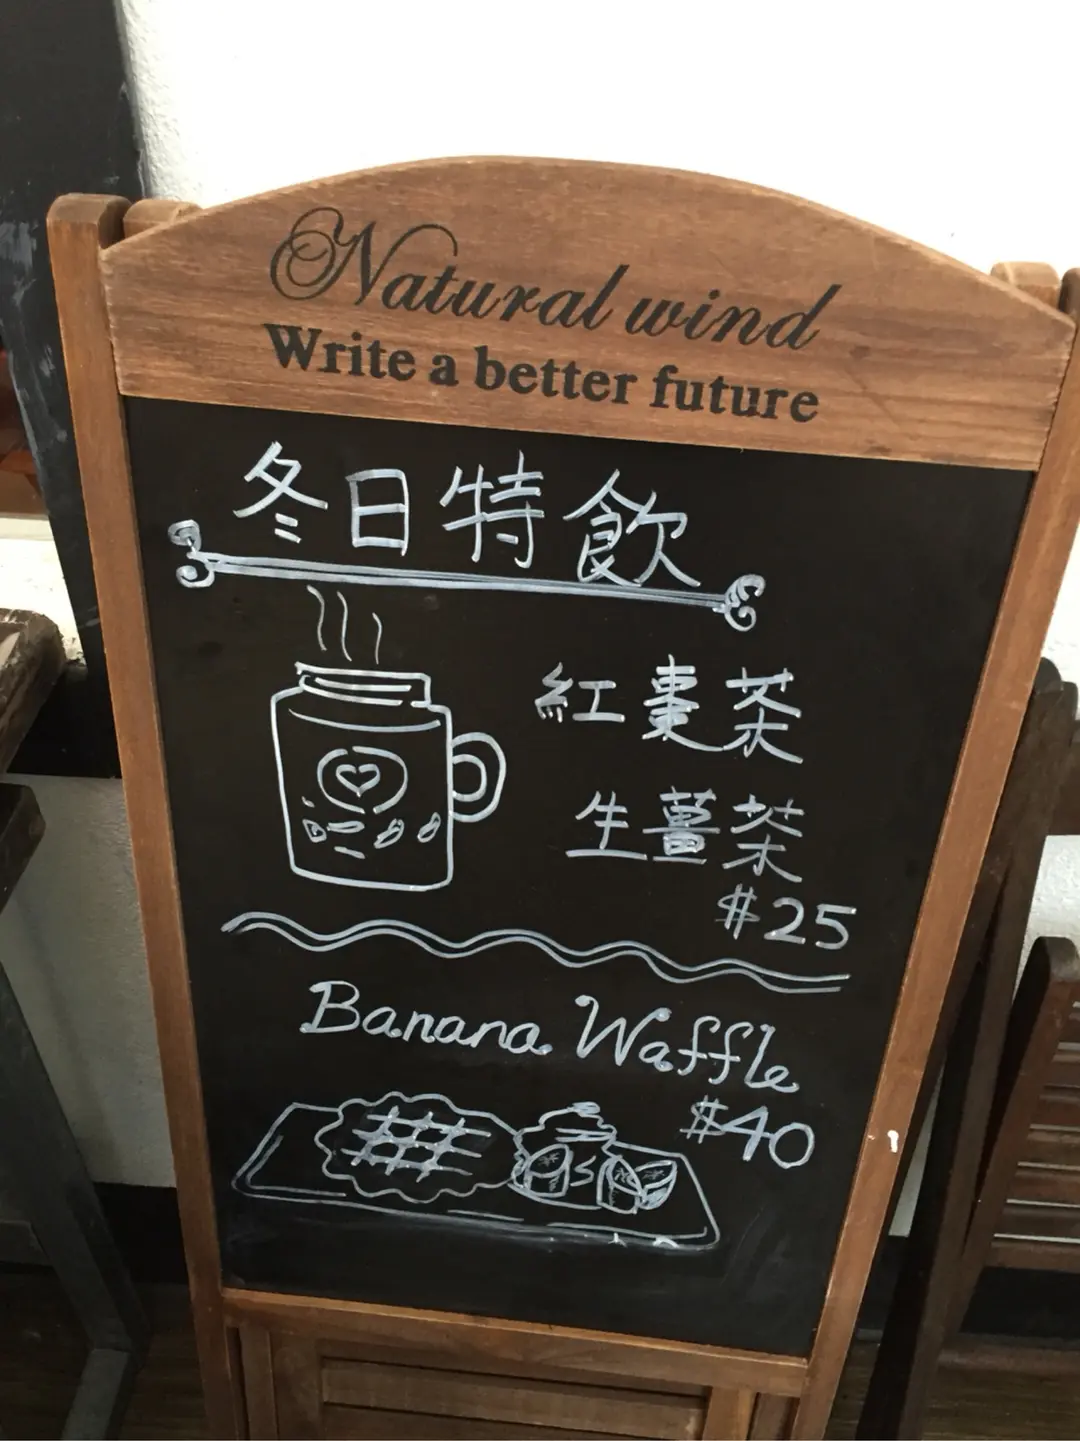 Natural wind
Write a better future
冬日特飲
紅棗茶
生薑茶
$25
Banana Waffle
$40